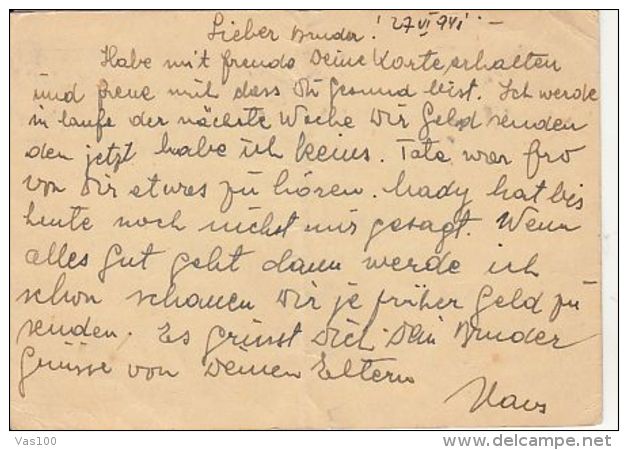 Lieber Bruder! 27 VI 941 -
Habe mit freude Deine Karte erhalten
und freue mich dass Du gesund bist. Ich werde
in laufe der nächste Woche Dir Geld senden
den jetzt habe ich keins. Tata war fro
von Dir etwas zu hören. Mady hat bis
heute noch nichst mir gesagt. Wenn
alles gut geht dann werde ich
schon schauen Dir je früher Geld zu
senden. Es grüsst Dich Dein Bruder
Grüsse von Deinen Eltern
Hans
Vas100
www.delcampe.net